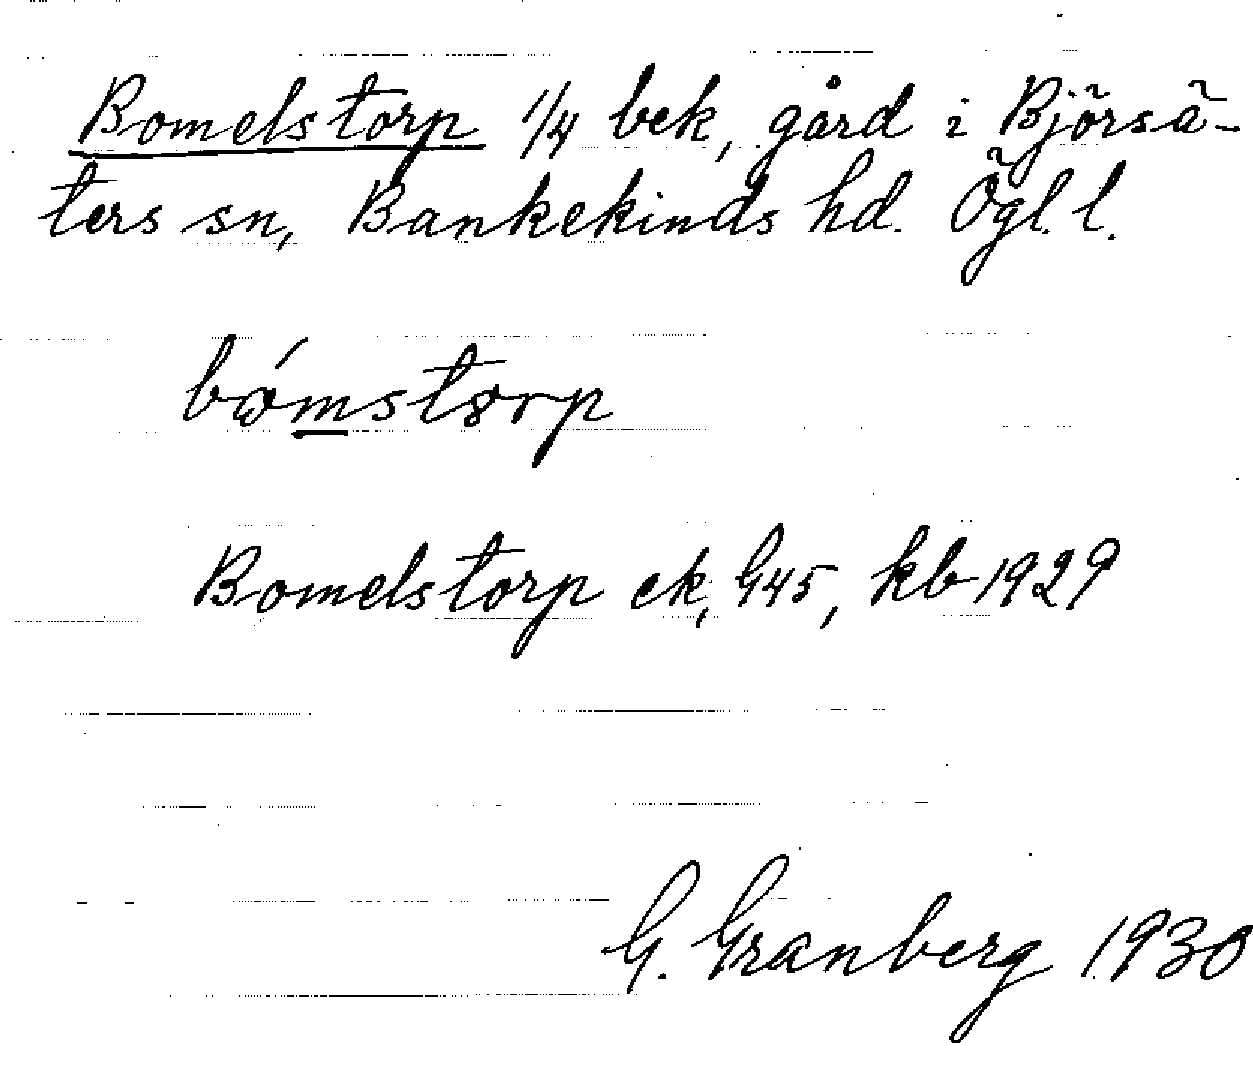 Bomelstorp 1/4 bek, gård i Björsä-
ters sn, Bankekinds hd. Ögl. l.
bómstorp
Bomelstorp ek, G45, kb 1929
G. Granberg 1930